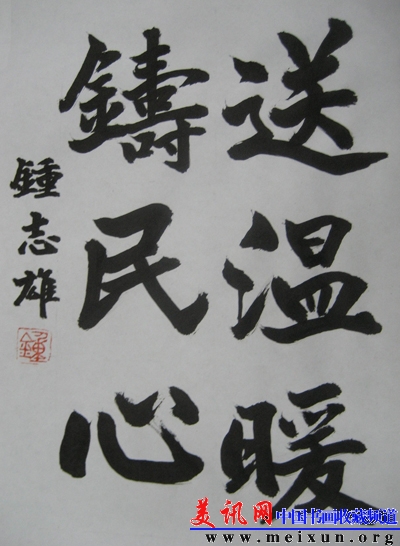 送温暖
鑄民心
鍾志雄
鍾
美讯网
中国书画收藏频道
www.meixun.org